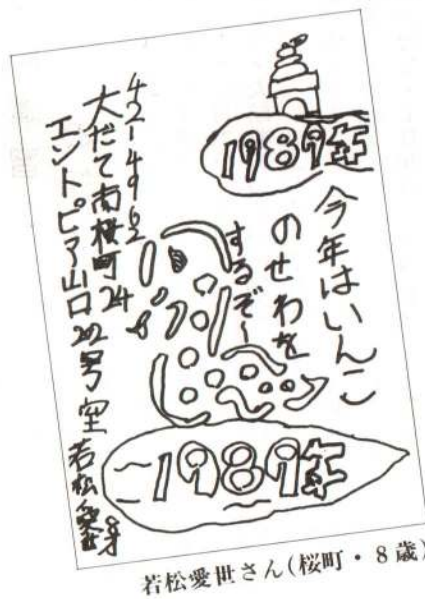 1989年
今年はいんこ
のせわを
するぞ〜
42-4962
大だて南桜町24
エントピア山口202号室
若松愛世
1989年
若松愛世さん(桜町・8歳)